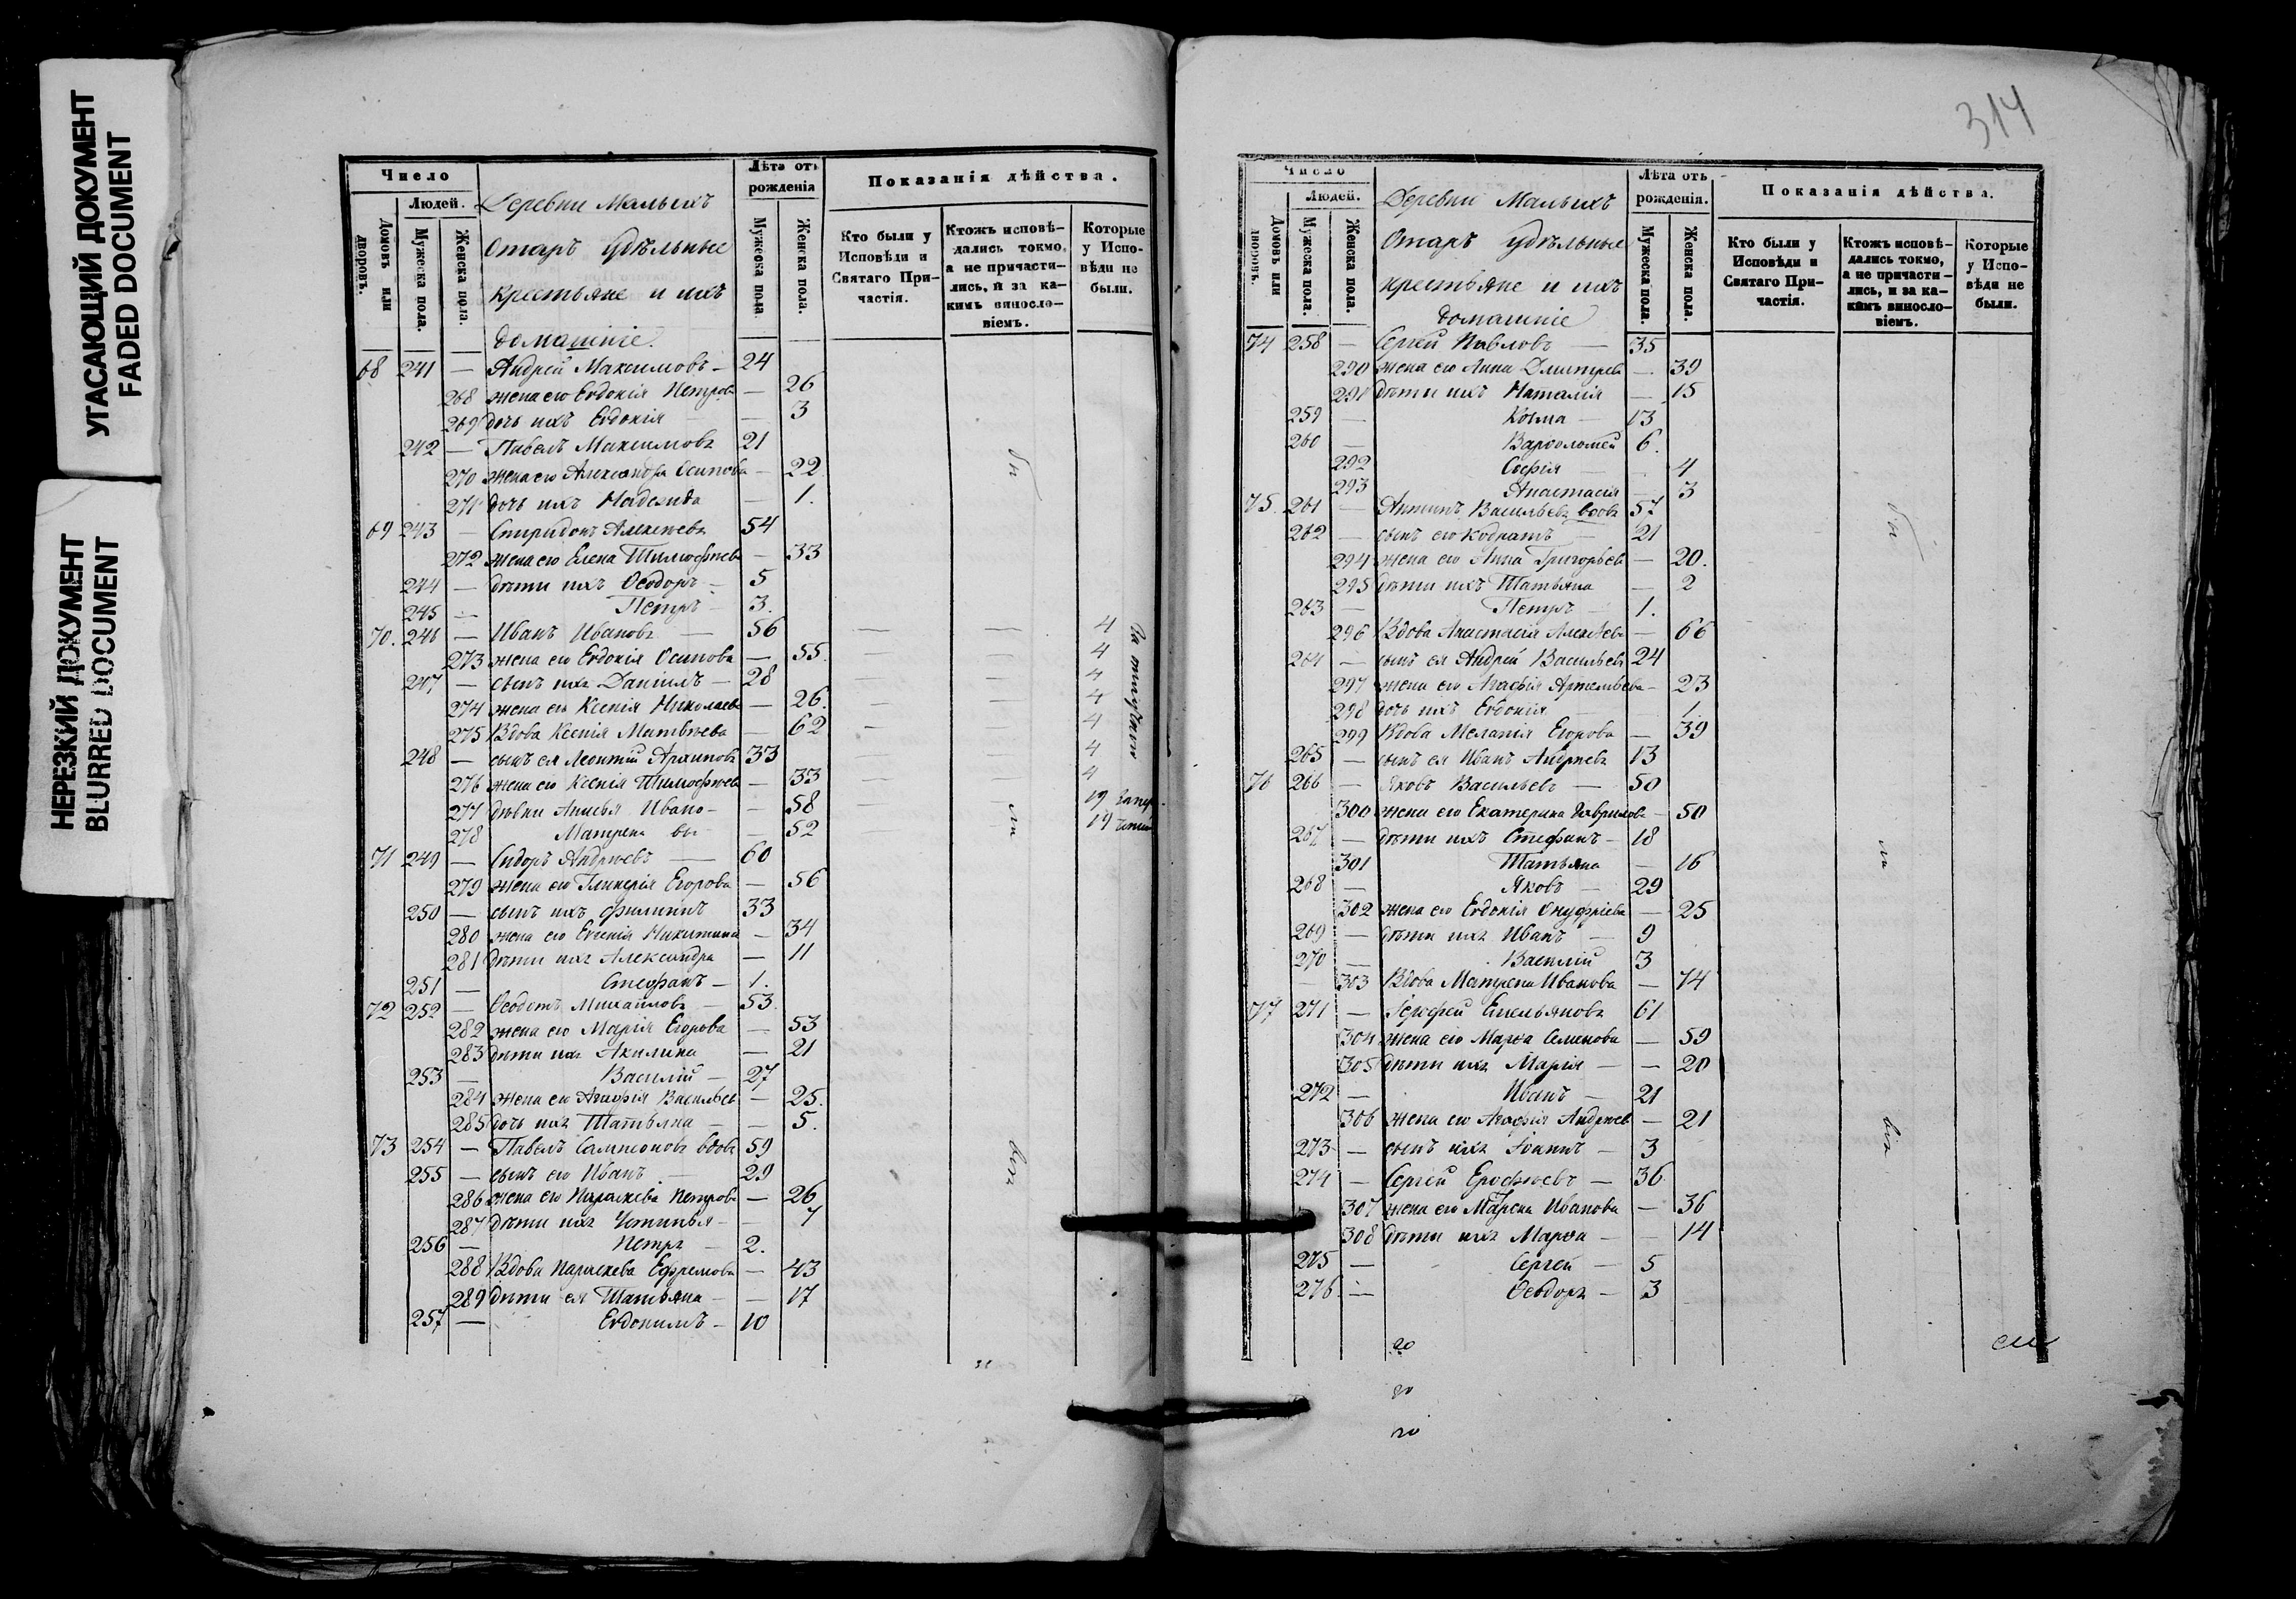 УГАСАЮЩИЙ ДОКУМЕНТ
FADED DOCUMENT
НЕРЕЗКИЙ ДОКУМЕНТ
BLURRED DOCUMENT
Число
Людей.
Домовъ или дворовъ.
Мужеска пола.
Женска пола.
Деревни Малыхъ
Отаръ удѣльные
крестьяне и ихъ
домашніе.
Лѣта отъ рожденія
Мужеска пола
Женска пола.
Показанія дѣйства.
Кто были у Исповѣди и Святаго Причастія.
Ктожъ исповѣдались токмо, а не причастились, и за какимъ винословіемъ.
Которые у Исповѣди не были.
68 241 — Андрей Максимовъ — 24
268 жена его Евдокія Петрова — 26
269 дочь ихъ Евдокія — 3
242 — Павелъ Максимовъ 21
270 жена его Александра Осипова — 22
271 дочь ихъ Надежда — 1.
69 243 — Спиридонъ Алексѣевъ 54
272 жена его Елена Тимофѣева — 33
244 — дѣти ихъ Ѳеодоръ — 5
245 — Петръ — 3.
70. 246 — Иванъ Ивановъ — 56 — — 4
273 жена его Евдокія Осипова — 55 — — 4
247 — сынъ ихъ Даніилъ — 28 — — 4
274 жена его Ксенія Николаева — 26. — — 4
275 Вдова Ксенія Матвѣева — 62 — — 4
248 — сынъ ея Леонтій Архиповъ 33 — — 4
276 жена его Ксенія Тимофѣева — 33 — — 4
277 дѣвки Анисья Ивано- — 58 — 19
278 Матрена вы — 52 19
71 249 — Сидоръ Андреевъ — 60
279 жена его Гликерія Егорова — 56
250 — сынъ ихъ Филиппъ 33
280 жена его Евгенія Никитина — 34
281 дѣти ихъ Александра — 11
251 — Стефанъ — 1.
72 252 — Ѳеодотъ Михайловъ — 53
282 жена его Марія Егорова — 53
283 дѣти ихъ Акилина — 21
253 — Василій — 27
284 жена его Агафія Васильев — 25.
285 дочь ихъ Татьяна — 5.
73 254 — Павелъ Сампсоновъ вдовъ 59
255 — сынъ его Иванъ — 29
286 жена его Параскева Петрова — 26
287 дѣти ихъ Устинья — 7
256 — Петръ — 2.
288 Вдова Параскева Ефремова — 43
289 дѣти ея Татьяна — 17
257 — Евдокимъ — 10
314
Число
Людей.
Домовъ или дворовъ.
Мужеска пола.
Женска пола.
Деревни Малыхъ
Отаръ удѣльные
крестьяне и ихъ
домашніе
Лѣта отъ рожденія.
Мужеска пола.
Женска пола.
Показанія дѣйства.
Кто были у Исповѣди и Святаго Причастія.
Ктожъ исповѣдались токмо, а не причастились, и за какимъ винословіемъ.
Которые у Исповѣди не были.
74 258 — Сергей Павловъ — 35
290 жена его Анна Дмитрева — 39
291 дѣти ихъ Наталія — 15
259 — Козма — 13
260 — Варѳоломей 6.
292 Софія — 4
293 Анастасія — 3
75. 261 — Антипъ Васильевъ вдовъ 57
262 — сынъ его Кодратъ — 21
294 жена его Анна Григорьев — 20.
295 дѣти ихъ Татьяна — 2
263 — Петръ — 1.
296 Вдова Анастасія Алексѣева — 66
264 — сынъ ея Андрей Васильевъ 24
297 жена его Агафія Артемьева — 23
298 дочь ихъ Евдокія — 1
299 Вдова Меланія Егорова — 39
265 — сынъ ея Иванъ Андреевъ 13
76 266 — Яковъ Васильевъ — 50
300 жена его Екатерина Гаврилова — 50
267 — дѣти ихъ Стефанъ — 18
301 Татьяна — 16
268 — Яковъ — 29
302 жена его Евдокія Онуфріева — 25
269 — дѣти ихъ Иванъ — 9
270 — Василій 3
303 Вдова Матрена Иванова — 74
77 271 — Ерофей Емельяновъ 61
304 жена его Марѳа Семенова — 59
305 дѣти ихъ Марія — 20
272 — Иванъ — 21
306 жена его Агафія Андреев — 21
273 — сынъ ихъ Іоаннъ — 3
274 — Сергей Ерофѣевъ — 36
307 жена его Марѳа Иванова — 36
308 дѣти ихъ Марѳа — 14
275 — Сергей — 5
276 — Ѳеодоръ — 3